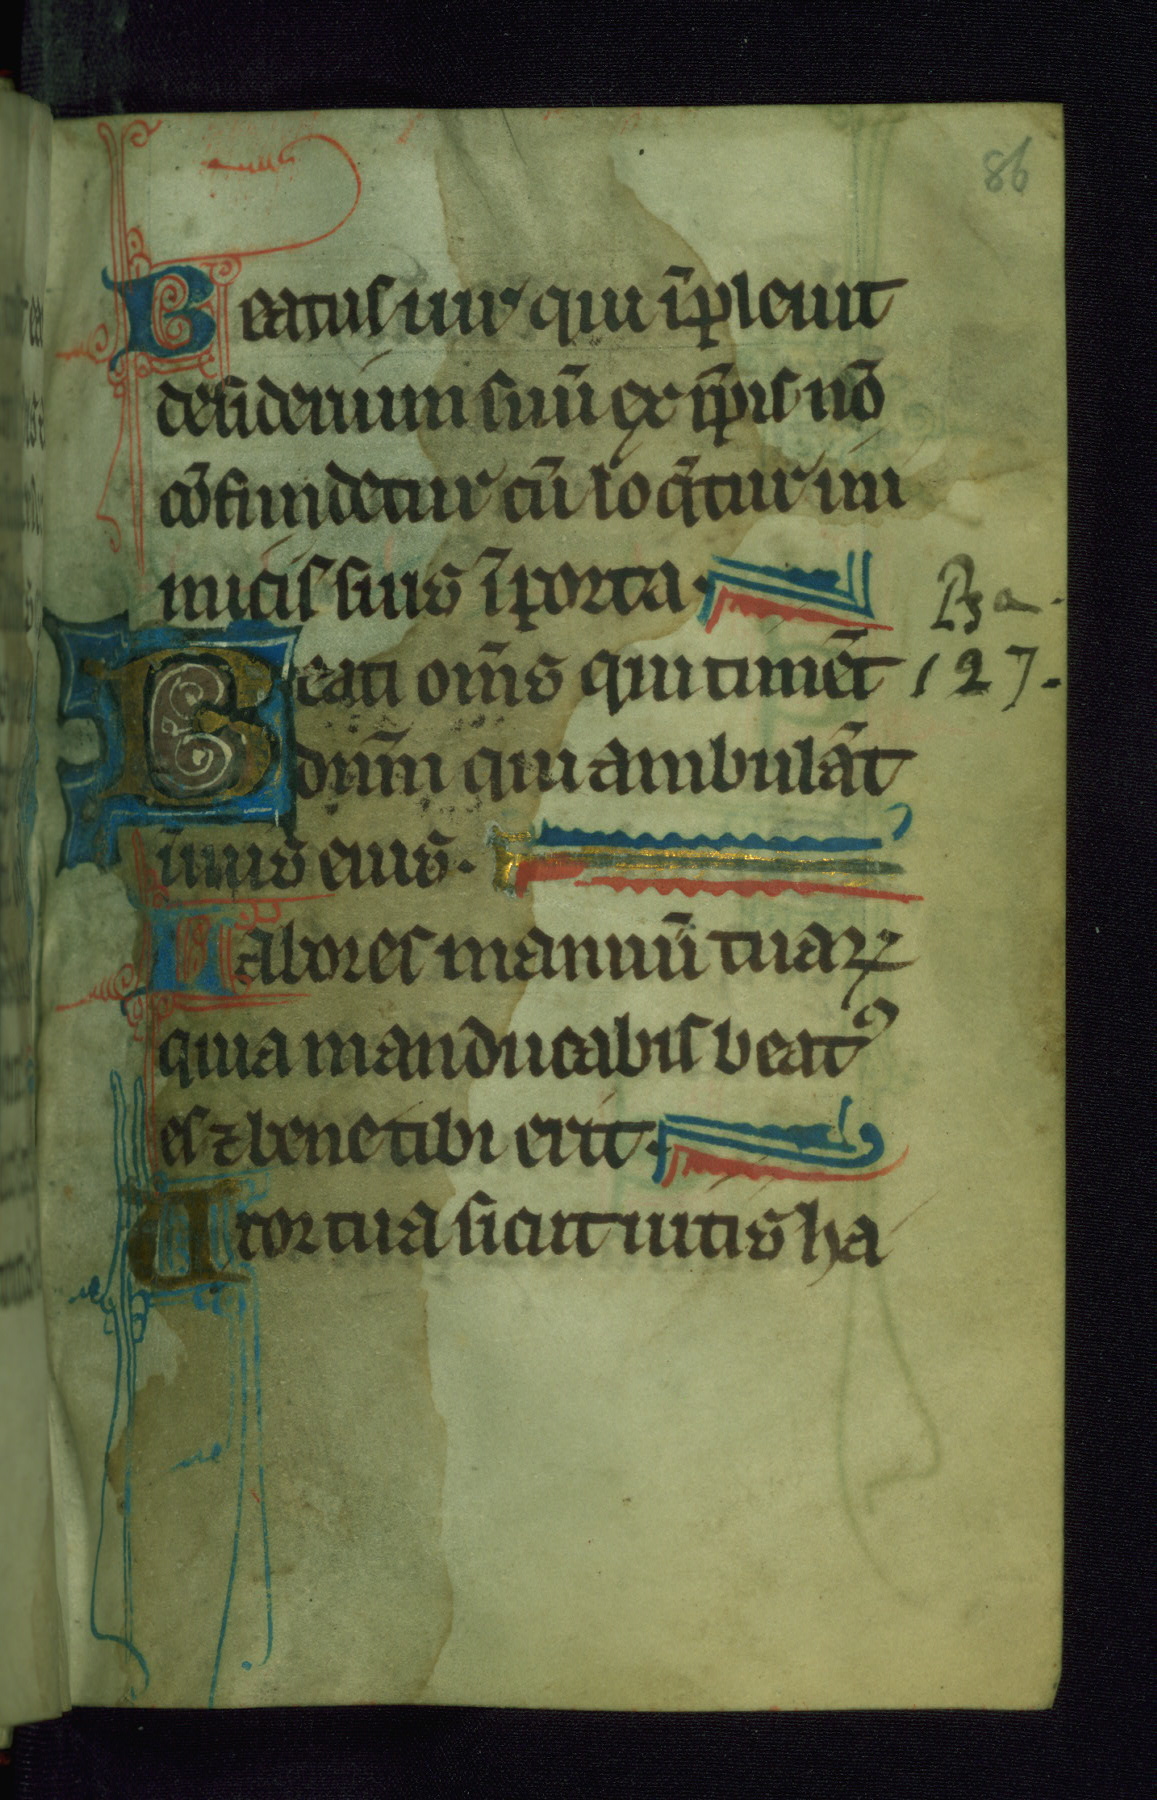 86
Beatus uir qui ĩpleuit
desiderium suũ ex ip̃is nõ
cõfundetur cũ loq̃tur ini
micis suis ĩ porta.
Psa.
127.
Beati om̃s qui timẽt
dñm qui ambulãt
ĩ uiis eius.
Labores manuũ tuaꝝ
quia manducabis beatꝰ
es ⁊ bene tibi erit.
Uxor tua sicut uitis ha